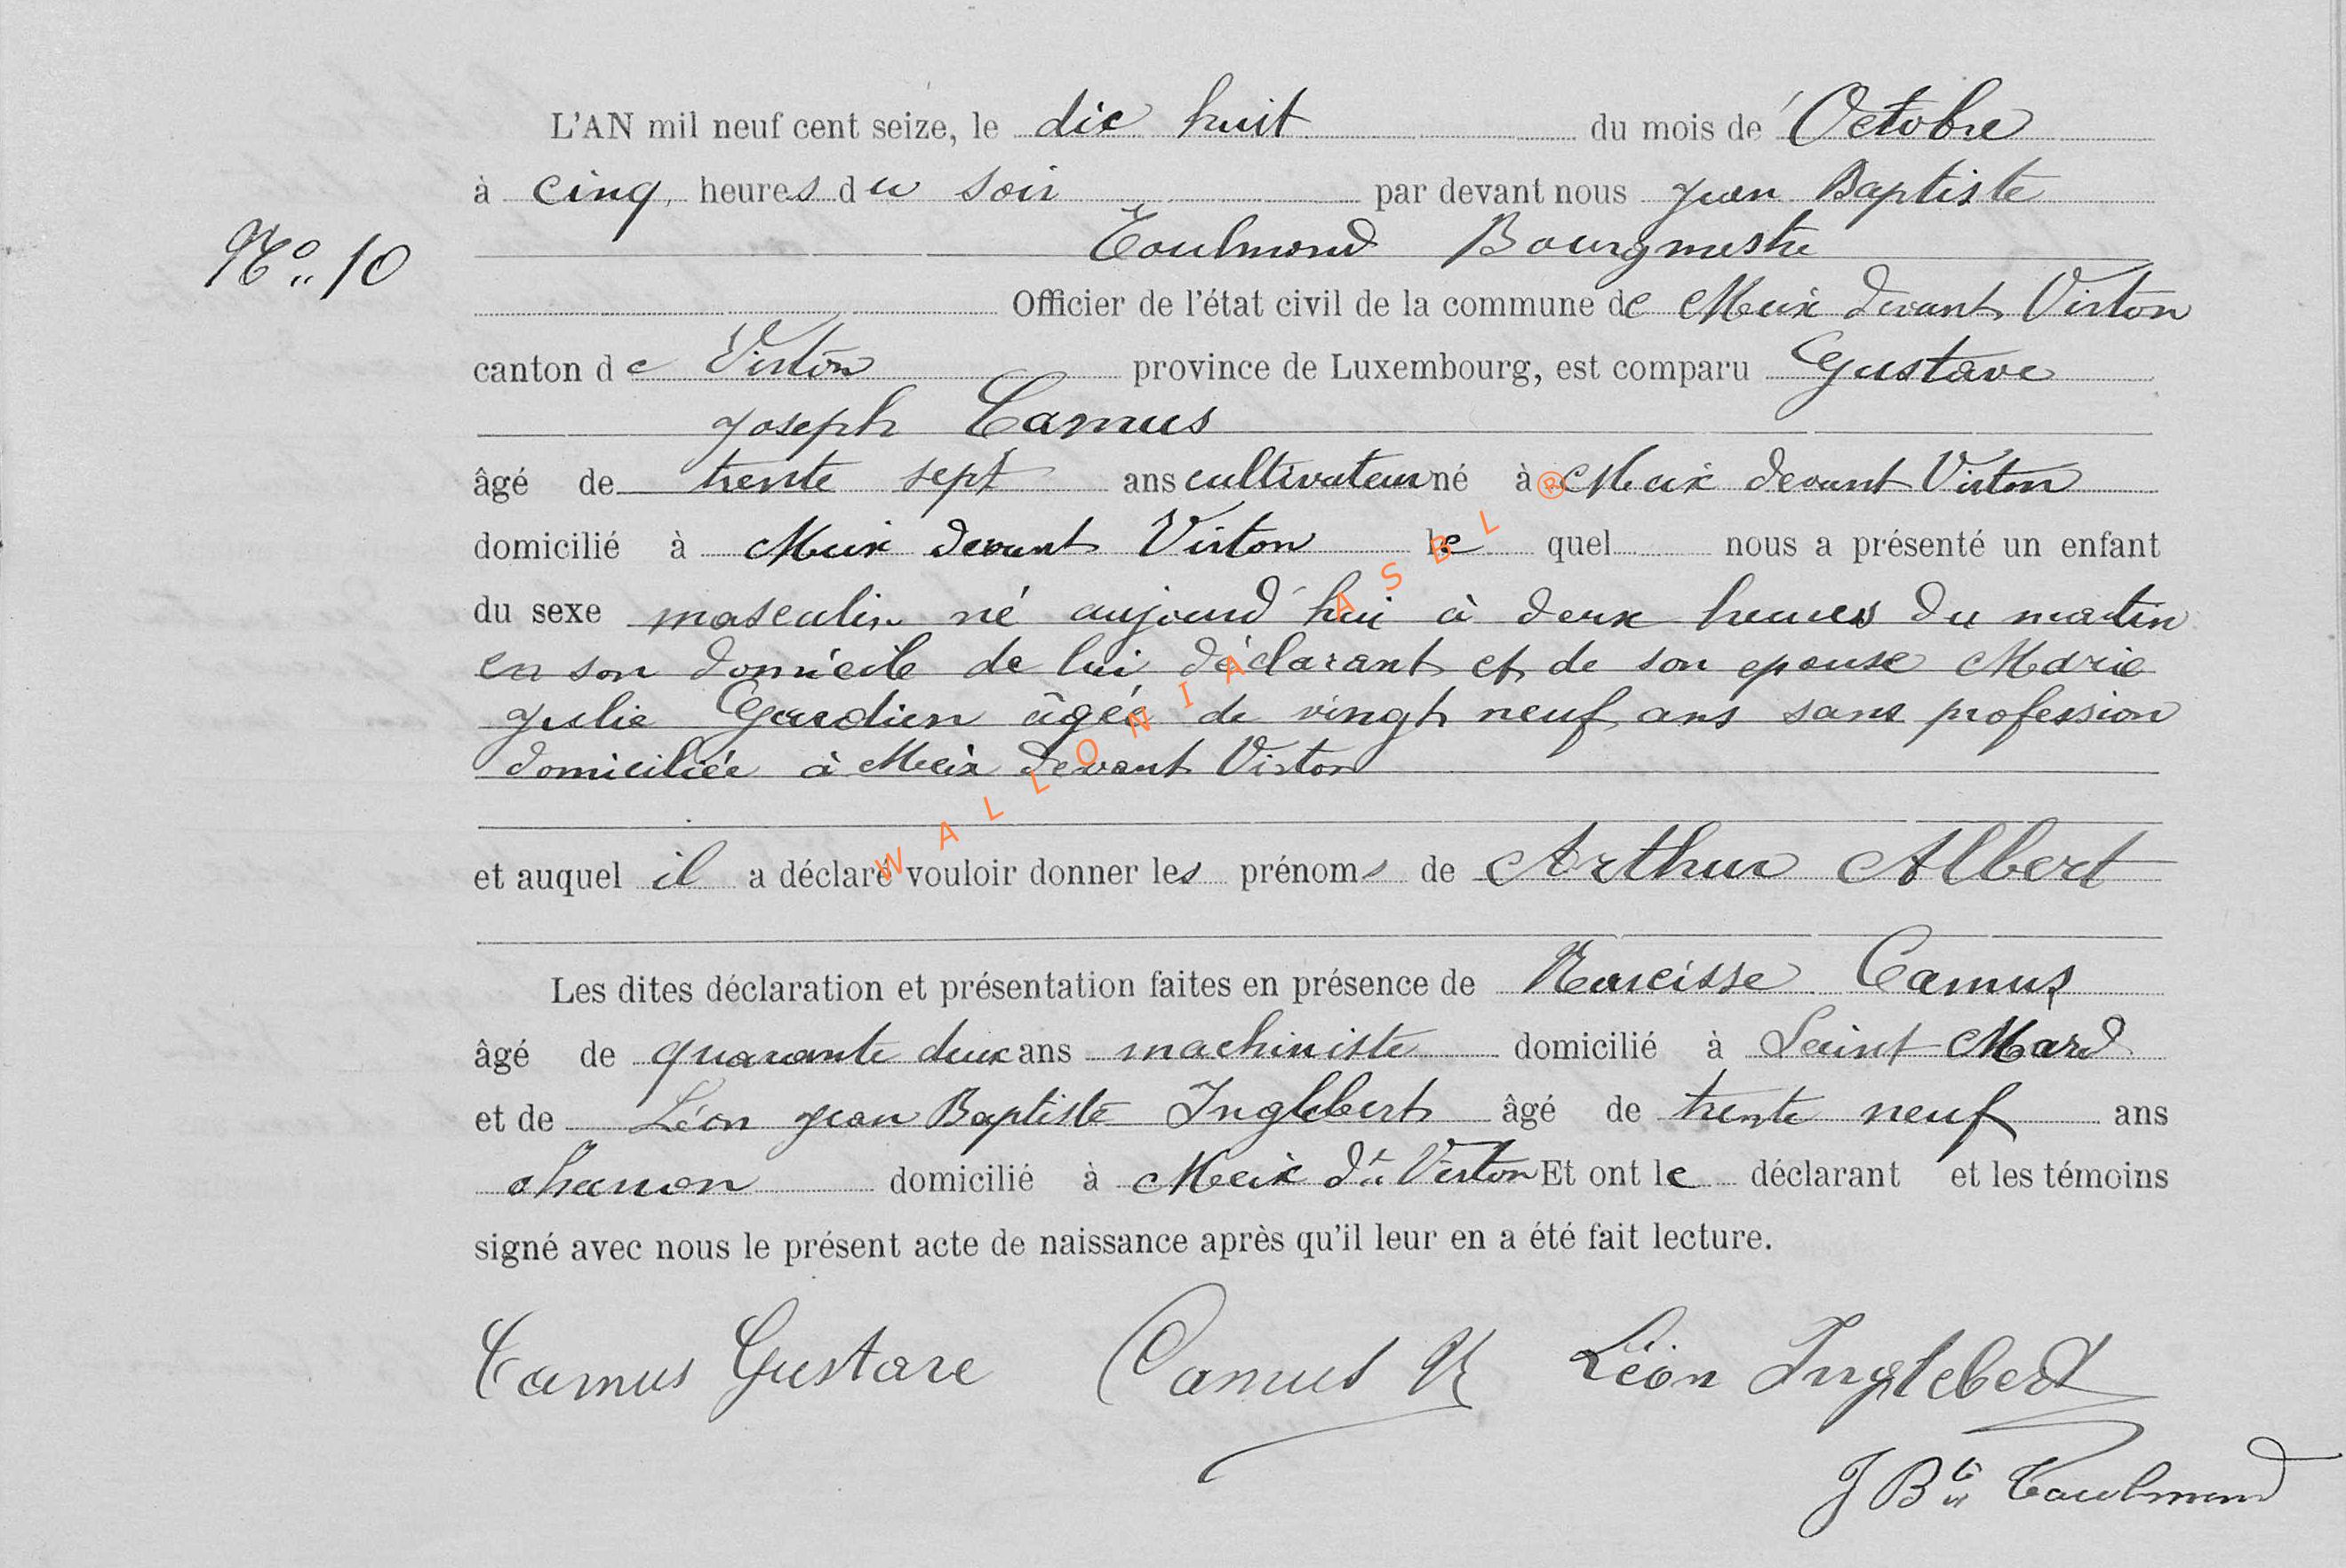 L'AN mil neuf cent seize, le dix huit du mois de Octobre
à cinq heures du soir par devant nous Jean Baptiste
Toulmond Bourgmestre
N° 10
Officier de l'état civil de la commune de Meix devant Virton
canton de Virton province de Luxembourg, est comparu Gustave
Joseph Camus
âgé de trente sept ans cultivateur né à Meix devant Virton
domicilié à Meix devant Virton le quel nous a présenté un enfant
du sexe masculin né aujourd'hui à deux heures du matin
en son domicile de lui déclarant et de son epouse Marie
Julie Gardien âgée de vingt neuf ans sans profession
domiciliée à Meix devant Virton
et auquel il a déclaré vouloir donner les prénoms de Arthur Albert
Les dites déclaration et présentation faites en présence de Narcisse Camus
âgé de quarante deux ans machiniste domicilié à Saint Mard
et de Léon Jean Baptiste Inglebert âgé de trente neuf ans
domicilié à Meix dt Virton Et ont le déclarant et les témoins
signé avec nous le présent acte de naissance après qu'il leur en a été fait lecture.
Camus Gustave Camus N Léon Inglebert
J Bte Toulmond
WALLONIA ASBL ®